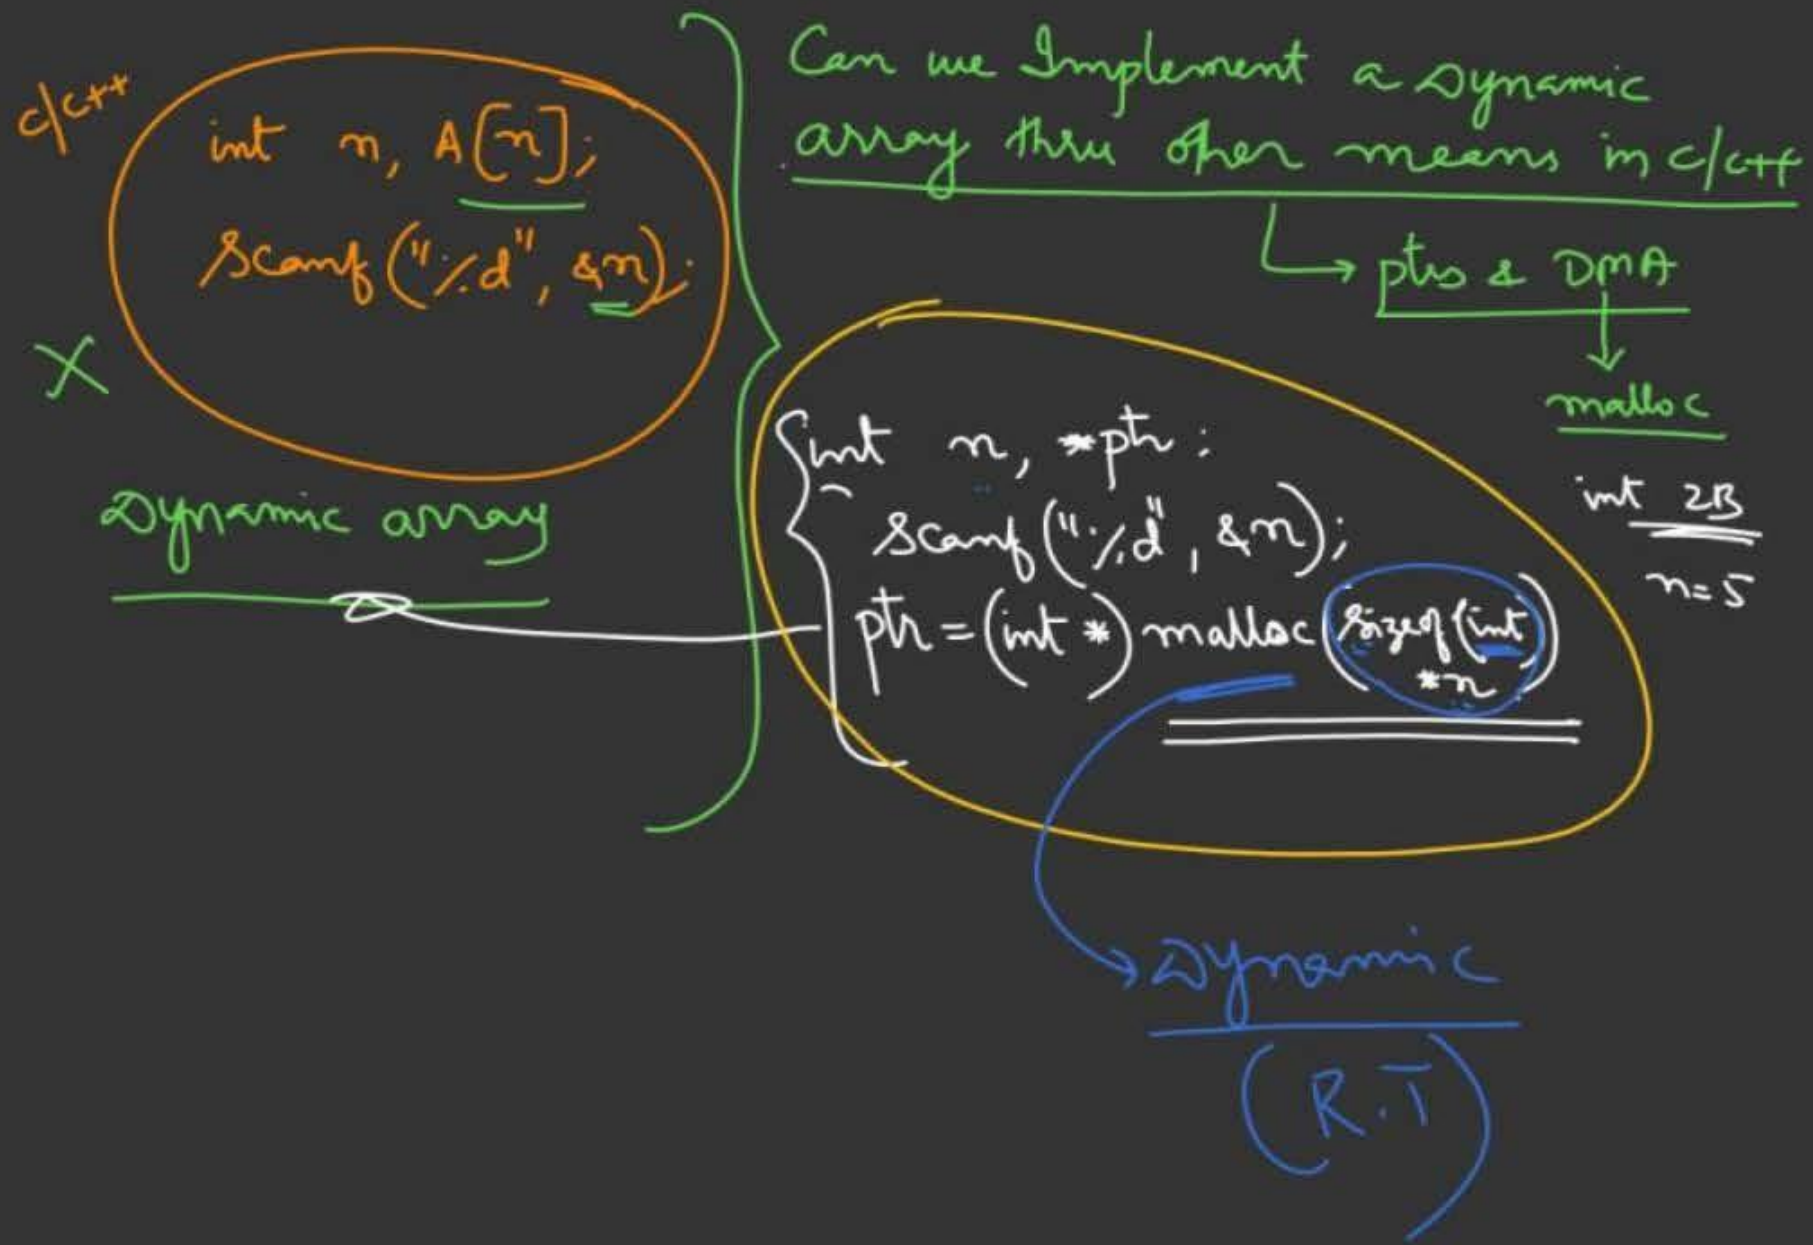 c/c++
int n, A[n];
scanf("%d", &n);
X
Dynamic array
Can we Implement a Dynamic
array thru other means in c/c++
ptrs & DMA
malloc
int n, *ptr;
scanf("%d", &n);
ptr = (int *) malloc (sizeof(int)
*n)
int 2B
n=5
Dynamic
(R.T)